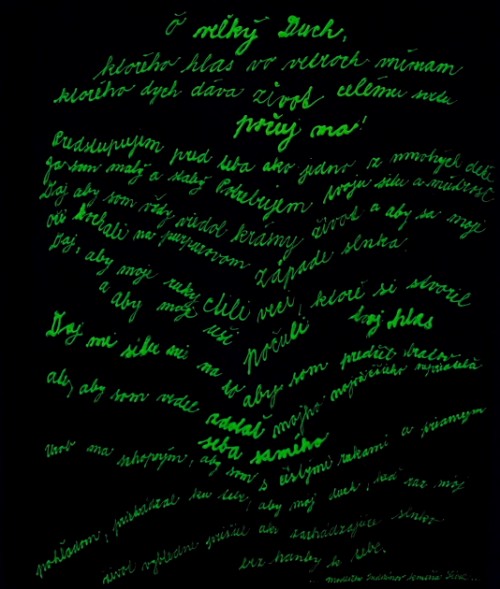 Ó veľký Duch,
ktorého hlas vo vetroch vnímam
ktorého dych dáva život celému svetu
počuj ma!
Predstupujem pred teba ako jedno z mnohých detí
Ja som malý a slabý Potrebujem tvoju silu a múdrosť
Daj aby som vždy videl krásny život a aby sa moje
oči kochali na purpurovom západe slnka.
Daj, aby moje ruky ctili veci, ktoré si stvoril
a aby moje uši počuli tvoj hlas
Daj mi silu nie na to aby som predčil bratov
ale, aby som vedel zdolať najväčšieho nepriateľa
seba samého
Urob ma schopným, aby som s čistými rukami a priamym
pohľadom, prichádzal ku tebe, aby môj duch, keď raz môj
život vyhladne prišiel ako zachádzajúce slnko
bez hanby k tebe.